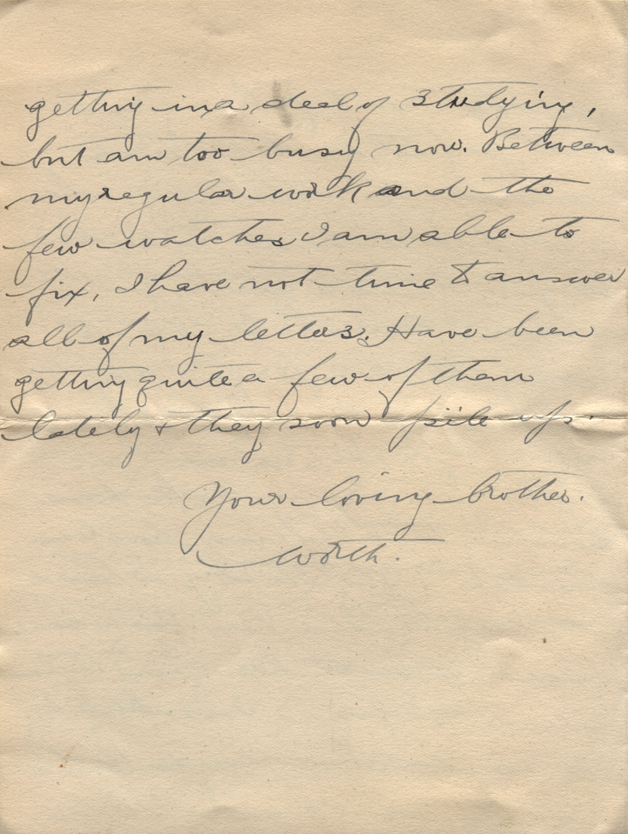 getting in a deal of studying,
but am too busy now. Between
my regular work and the
few watches I am able to
fix, I have not time to answer
all of my letters. Have been
getting quite a few of them
lately & they soon pile up.
Your loving brother.
Worth.